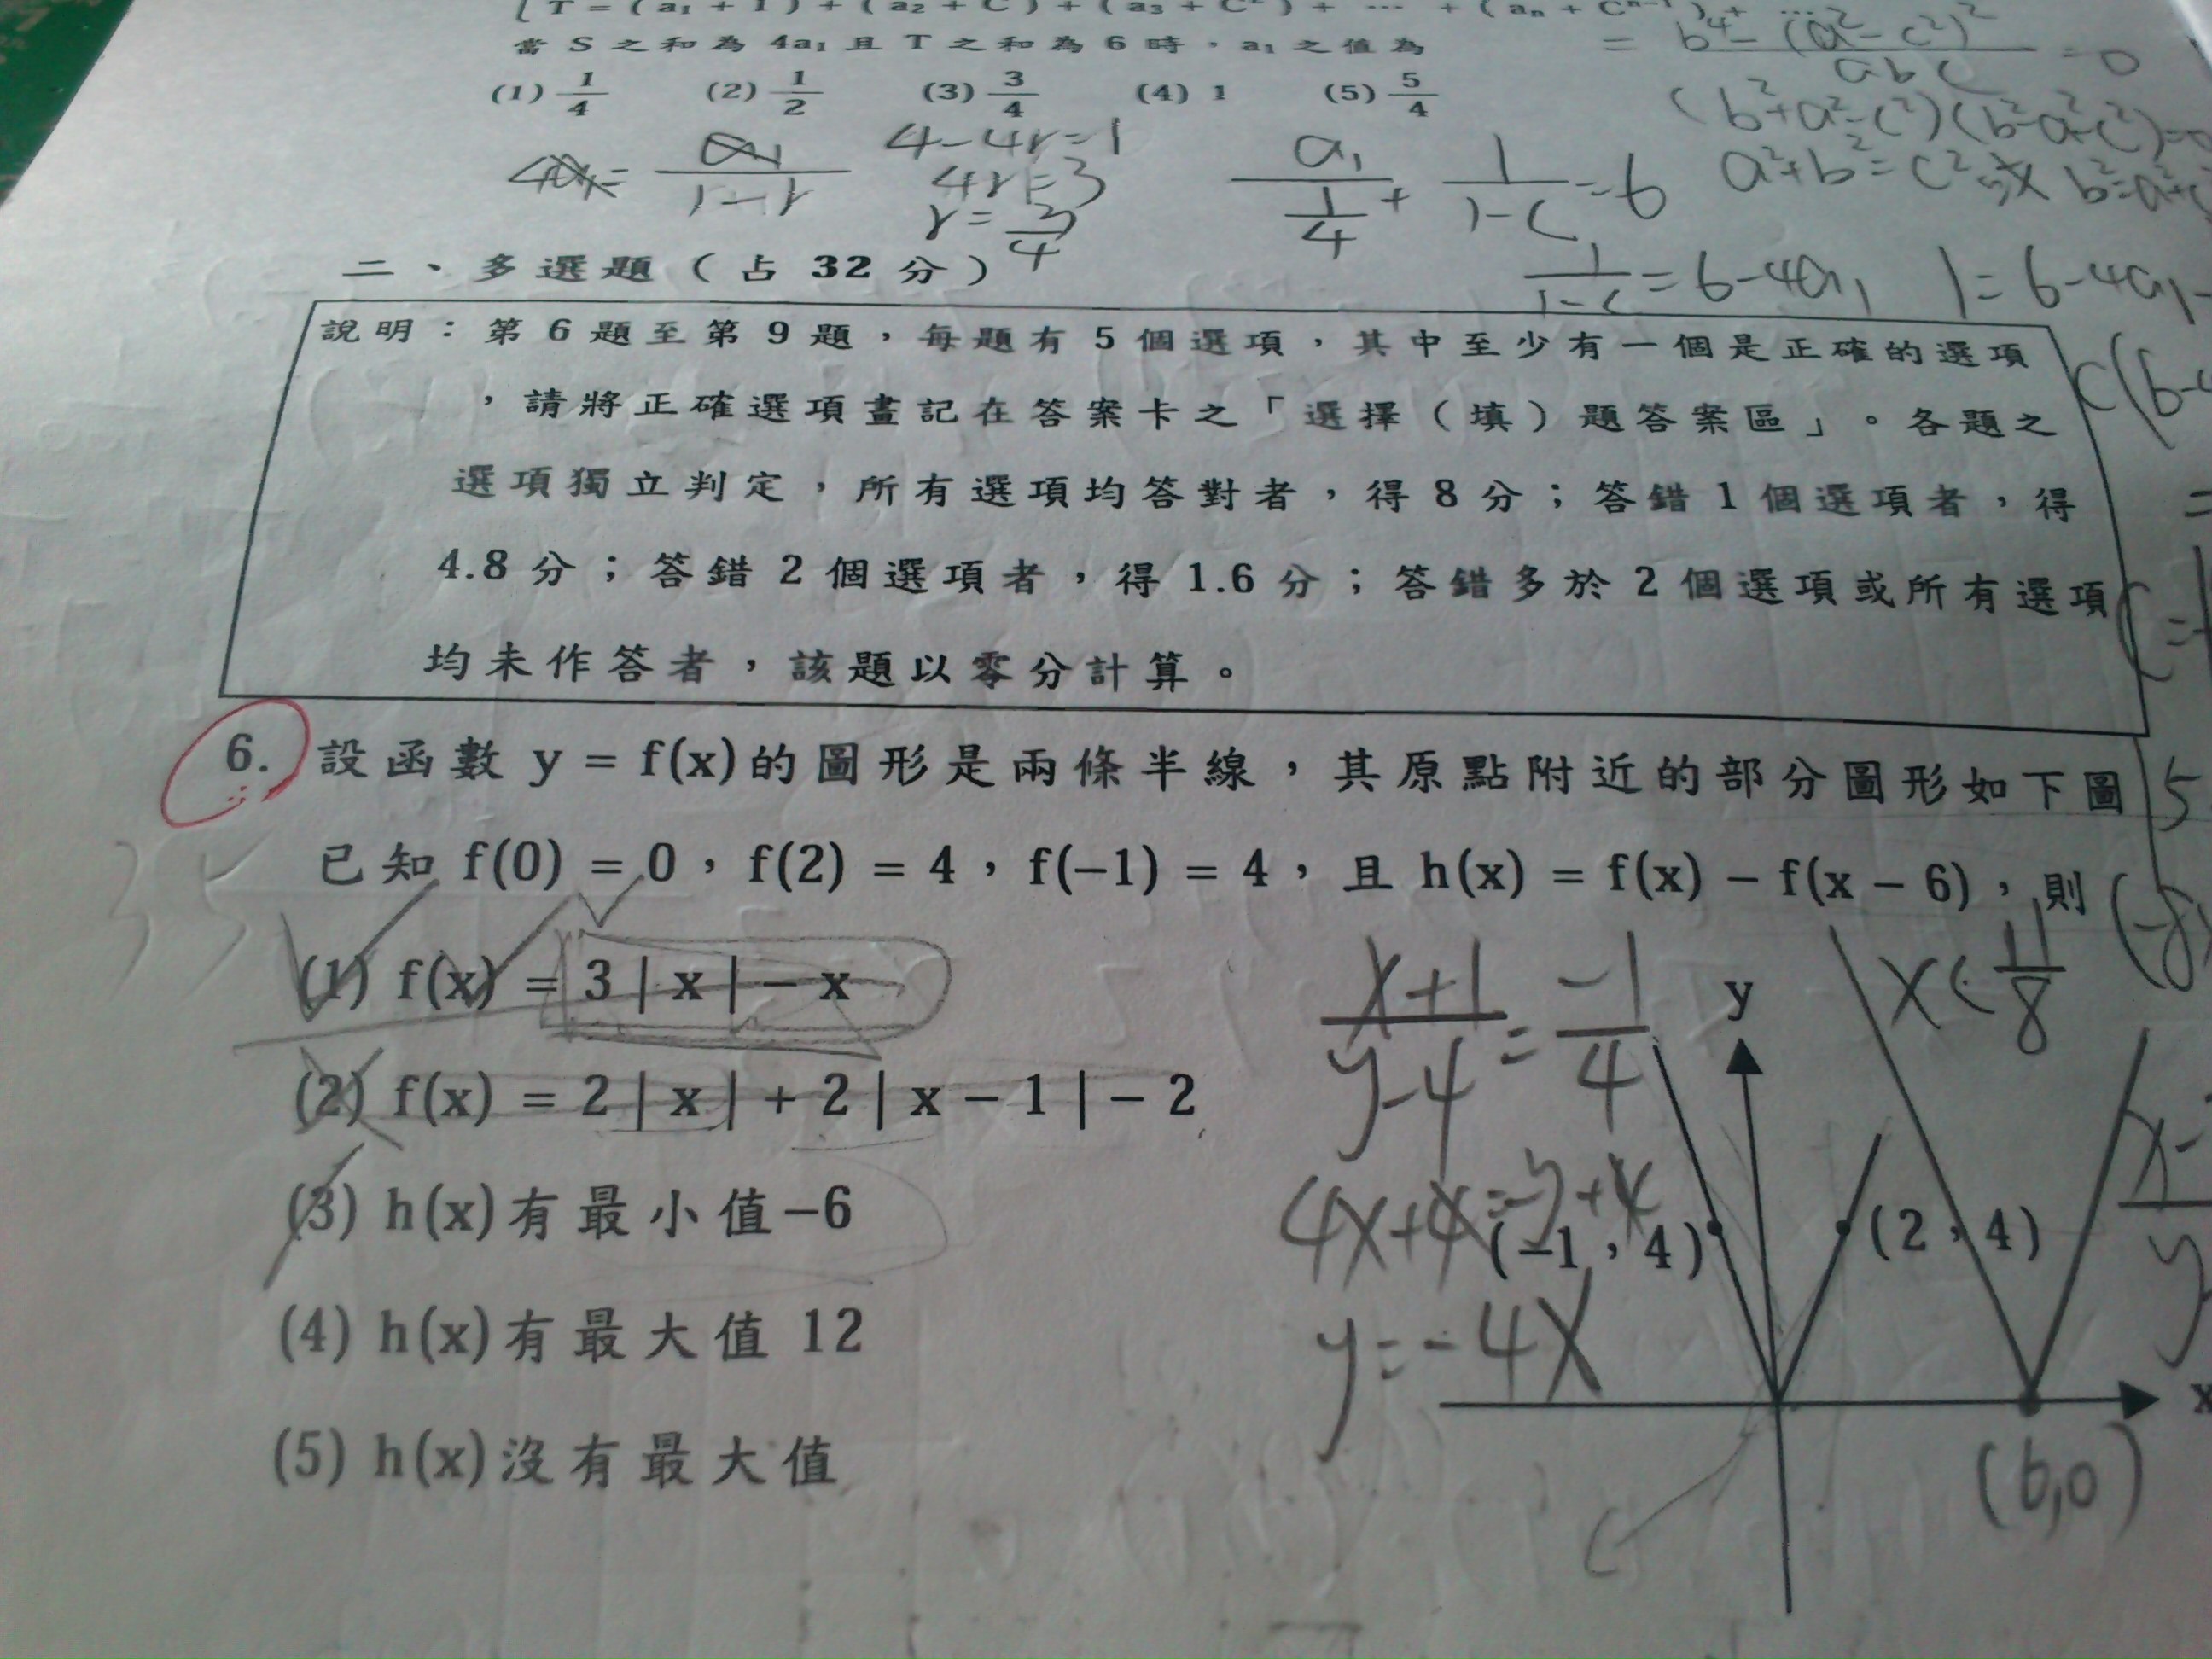 T = ( a₁ + 1 ) + ( a₂ + C ) + ( a₃ + C² ) + ⋯ + ( aₙ + Cⁿ⁻¹ ) + ⋯
當 S 之和為 4a₁ 且 T 之和為 6 時，a₁ 之值為
(1) 1/4 (2) 1/2 (3) 3/4 (4) 1 (5) 5/4
= b⁴ - (a² - c²)² / abc = 0
(b² + a² - c²)(b² - a² - c²) =
a² + b² = c²
4a₁ = a₁ / 1-r
4 - 4r = 1
4r = 3
r = 3/4
a₁ / 1/4 + 1 / 1-c = 6
1 / 1-c = 6 - 4a₁
1 = 6 - 4a₁ -
二、多選題（占 32 分）
說明：第 6 題至第 9 題，每題有 5 個選項，其中至少有一個是正確的選項
，請將正確選項畫記在答案卡之「選擇（填）題答案區」。各題之
選項獨立判定，所有選項均答對者，得 8 分；答錯 1 個選項者，得
4.8 分；答錯 2 個選項者，得 1.6 分；答錯多於 2 個選項或所有選項
均未作答者，該題以零分計算。
6. 設函數 y = f(x) 的圖形是兩條半線，其原點附近的部分圖形如下圖
已知 f(0) = 0，f(2) = 4，f(−1) = 4，且 h(x) = f(x) − f(x − 6)，則
(1) f(x) = 3 | x | − x
(2) f(x) = 2 | x | + 2 | x − 1 | − 2
(3) h(x) 有最小值 −6
(4) h(x) 有最大值 12
(5) h(x) 沒有最大值
x+1 / y-4 = -1 / 4
4x+4 = -y+4
y = -4x
y
x < 11/8
(−1，4)
(2，4)
x
(6,0)